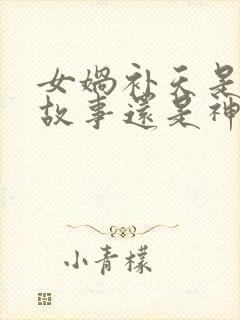 女娲补天是
故事还是神
小青檬